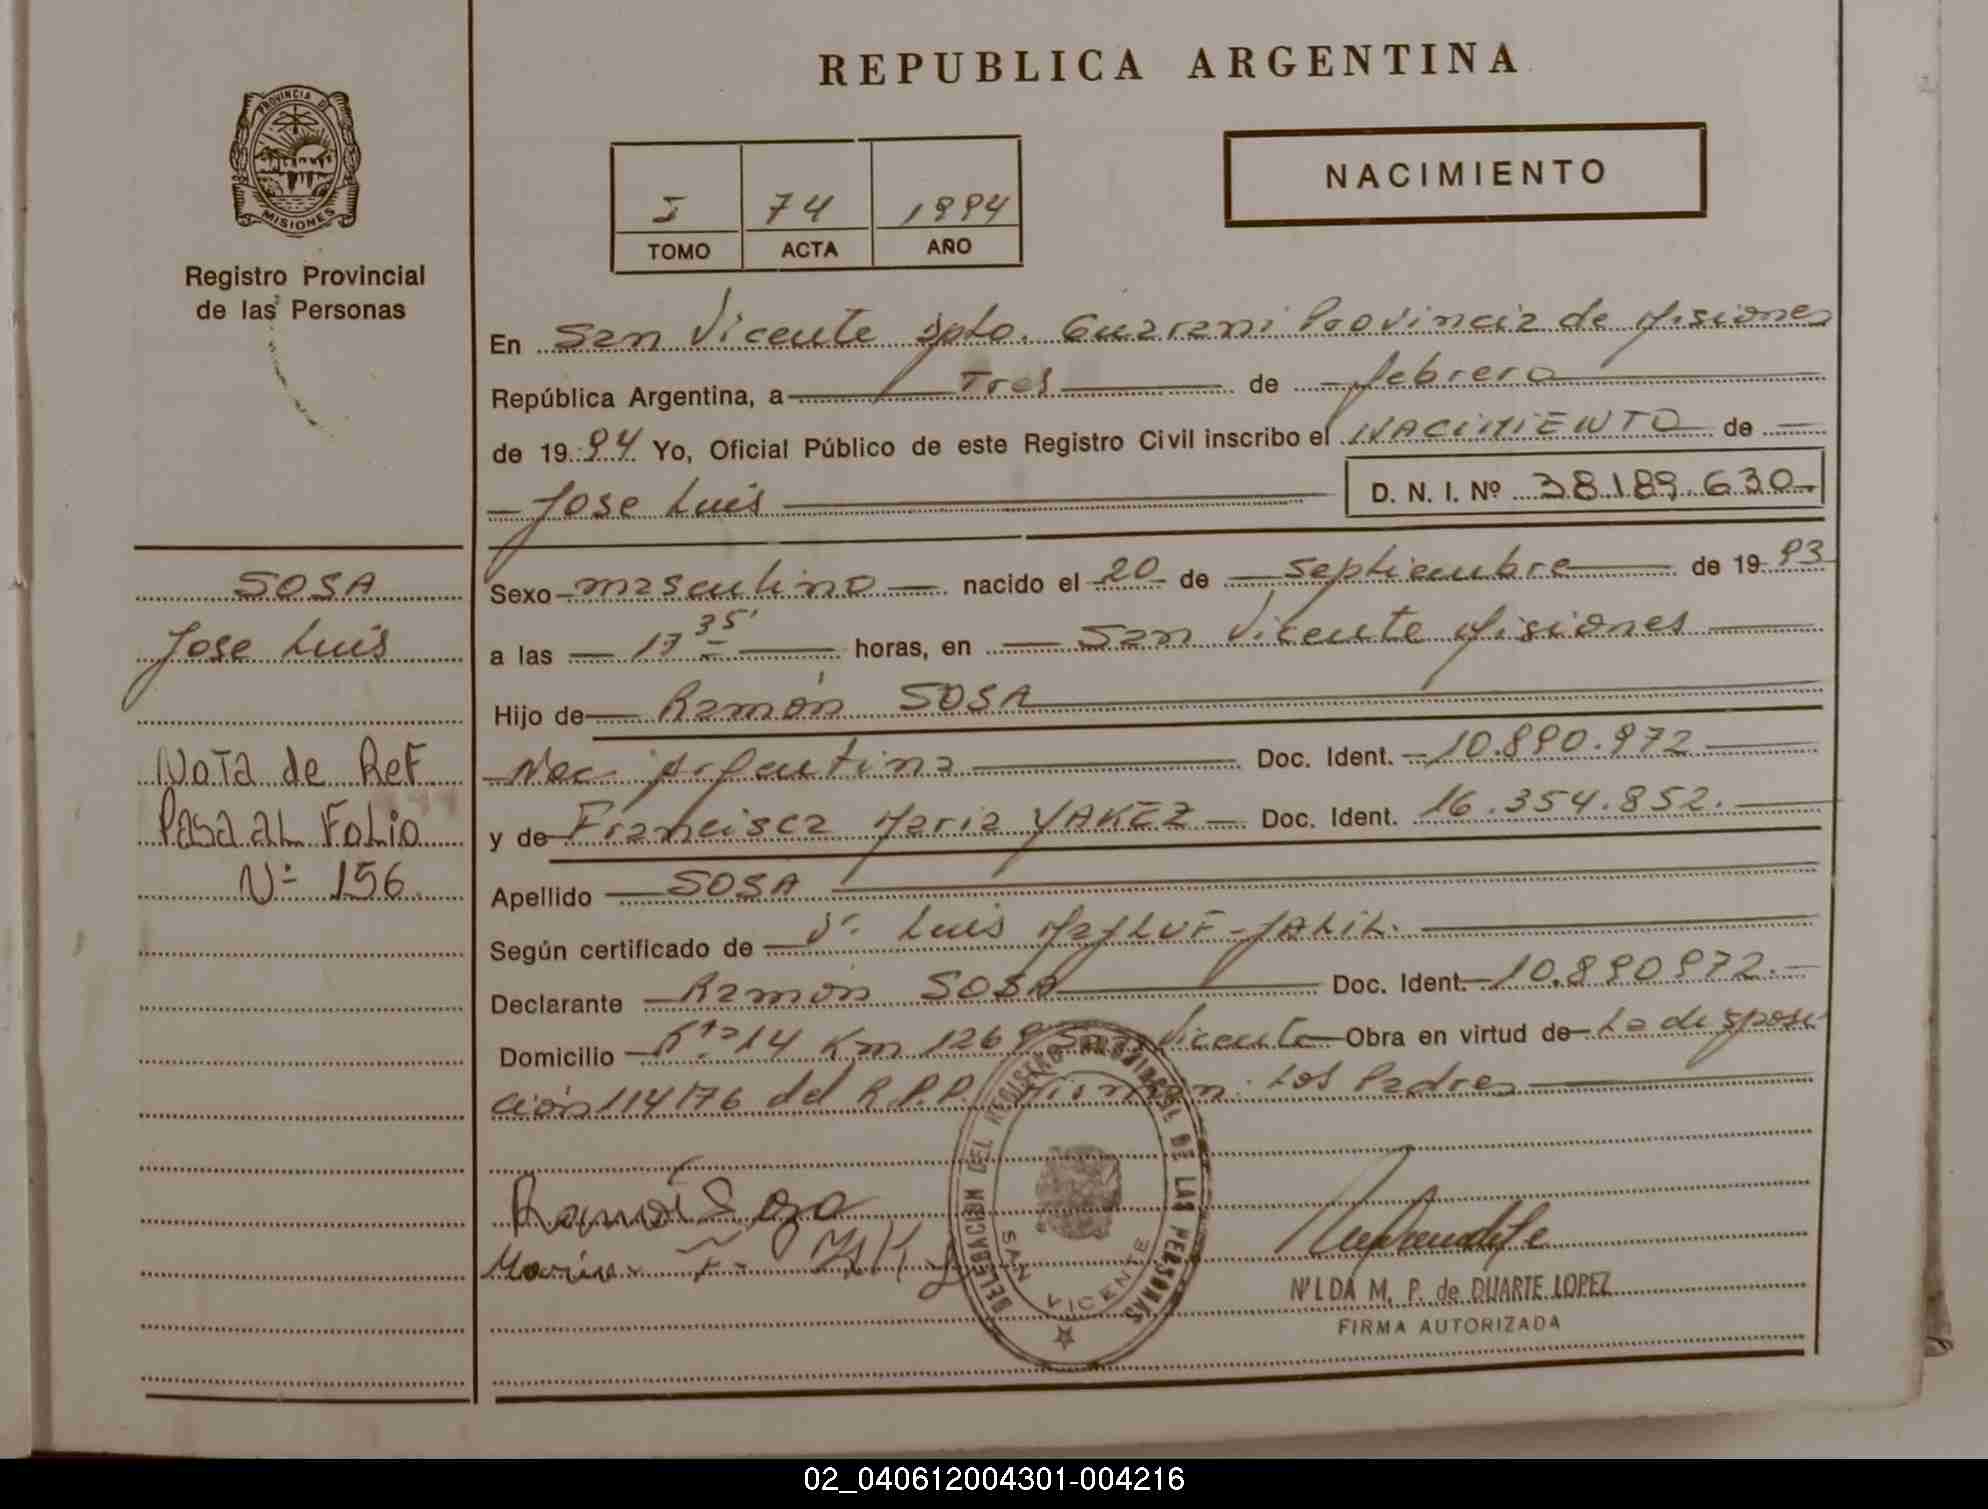 REPUBLICA ARGENTINA
PROVINCIA DE
MISIONES
Registro Provincial
de las Personas
I 74 1994
TOMO ACTA AÑO
NACIMIENTO
En San Vicente Dpto. Guarani Provincia de Misiones
República Argentina, a Tres de febrero
de 1994 Yo, Oficial Público de este Registro Civil inscribo el NACIMIENTO de
Jose Luis D. N. I. Nº 38.189.630
SOSA
Jose Luis
Nota de Ref
Pasa al Folio
Nº 156.
Sexo masculino nacido el 20 de septiembre de 1993
a las 17 35' horas, en San Vicente Misiones
Hijo de Ramón SOSA
Nac. Argentina Doc. Ident. 10.890.972
y de Francisca Maria YAKEZ Doc. Ident. 16.354.852.
Apellido SOSA
Según certificado de Dr. Luis JALIL.
Declarante Ramón SOSA Doc. Ident. 10.890972.
Domicilio Rta 14 Km 1269 San Vicente Obra en virtud de La disposi
ción 114/76 del R.P.P. Firman: Los Padres
Ramon Sosa
Maria F.
DELEGACION DEL REGISTRO PROVINCIAL DE LAS PERSONAS
SAN VICENTE
NILDA M. P. de DUARTE LOPEZ
FIRMA AUTORIZADA
02_040612004301-004216